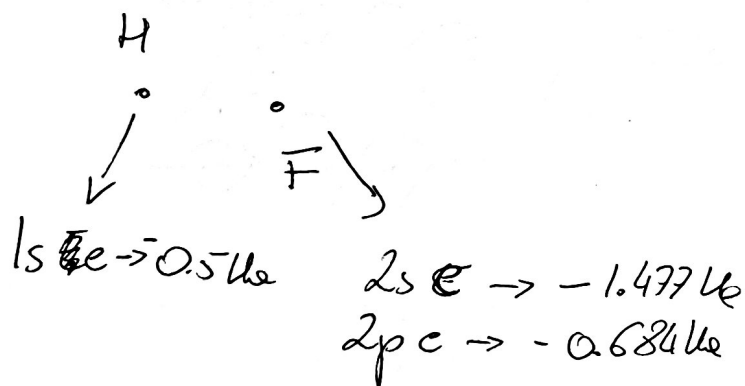 H
F
1s e → -0.5 Ha
2s e → -1.477 Ha
2p e → -0.684 Ha